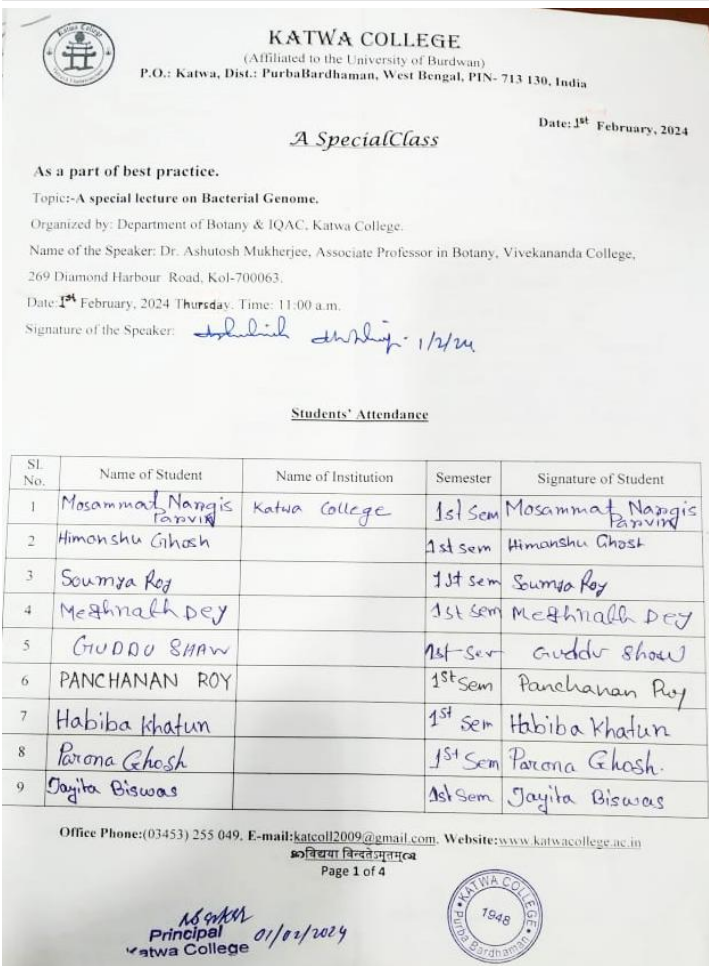 KATWA COLLEGE
(Affiliated to the University of Burdwan)
P.O.: Katwa, Dist.: PurbaBardhaman, West Bengal, PIN- 713 130, India
Date: 1st February, 2024
A SpecialClass
As a part of best practice.
Topic:-A special lecture on Bacterial Genome.
Organized by: Department of Botany & IQAC, Katwa College.
Name of the Speaker: Dr. Ashutosh Mukherjee, Associate Professor in Botany, Vivekananda College,
269 Diamond Harbour Road, Kol-700063.
Date: 1st February, 2024 Thursday. Time: 11:00 a.m.
Signature of the Speaker: 1/2/24
Students' Attendance
Sl. No. Name of Student Name of Institution Semester Signature of Student
1 Mosammat Nargis Parvin Katwa College 1st Sem Mosammat Nargis Parvin
2 Himanshu Ghosh 1st Sem Himanshu Ghosh
3 Soumya Roy 1st sem Soumya Roy
4 Meghnath Dey 1st Sem Meghnath Dey
5 GUDDU SHAW 1st Sem Guddu Shaw
6 PANCHANAN ROY 1st Sem Panchanan Roy
7 Habiba Khatun 1st Sem Habiba Khatun
8 Parona Ghosh 1st Sem Parona Ghosh.
9 Jayita Biswas 1st Sem Jayita Biswas
Office Phone:(03453) 255 049, E-mail:katcoll2009@gmail.com, Website:www.katwacollege.ac.in
विद्यया विन्दतेऽमृतम्
Page 1 of 4
Principal 01/02/2024
Katwa College
KATWA COLLEGE
1948
Purba Bardhaman